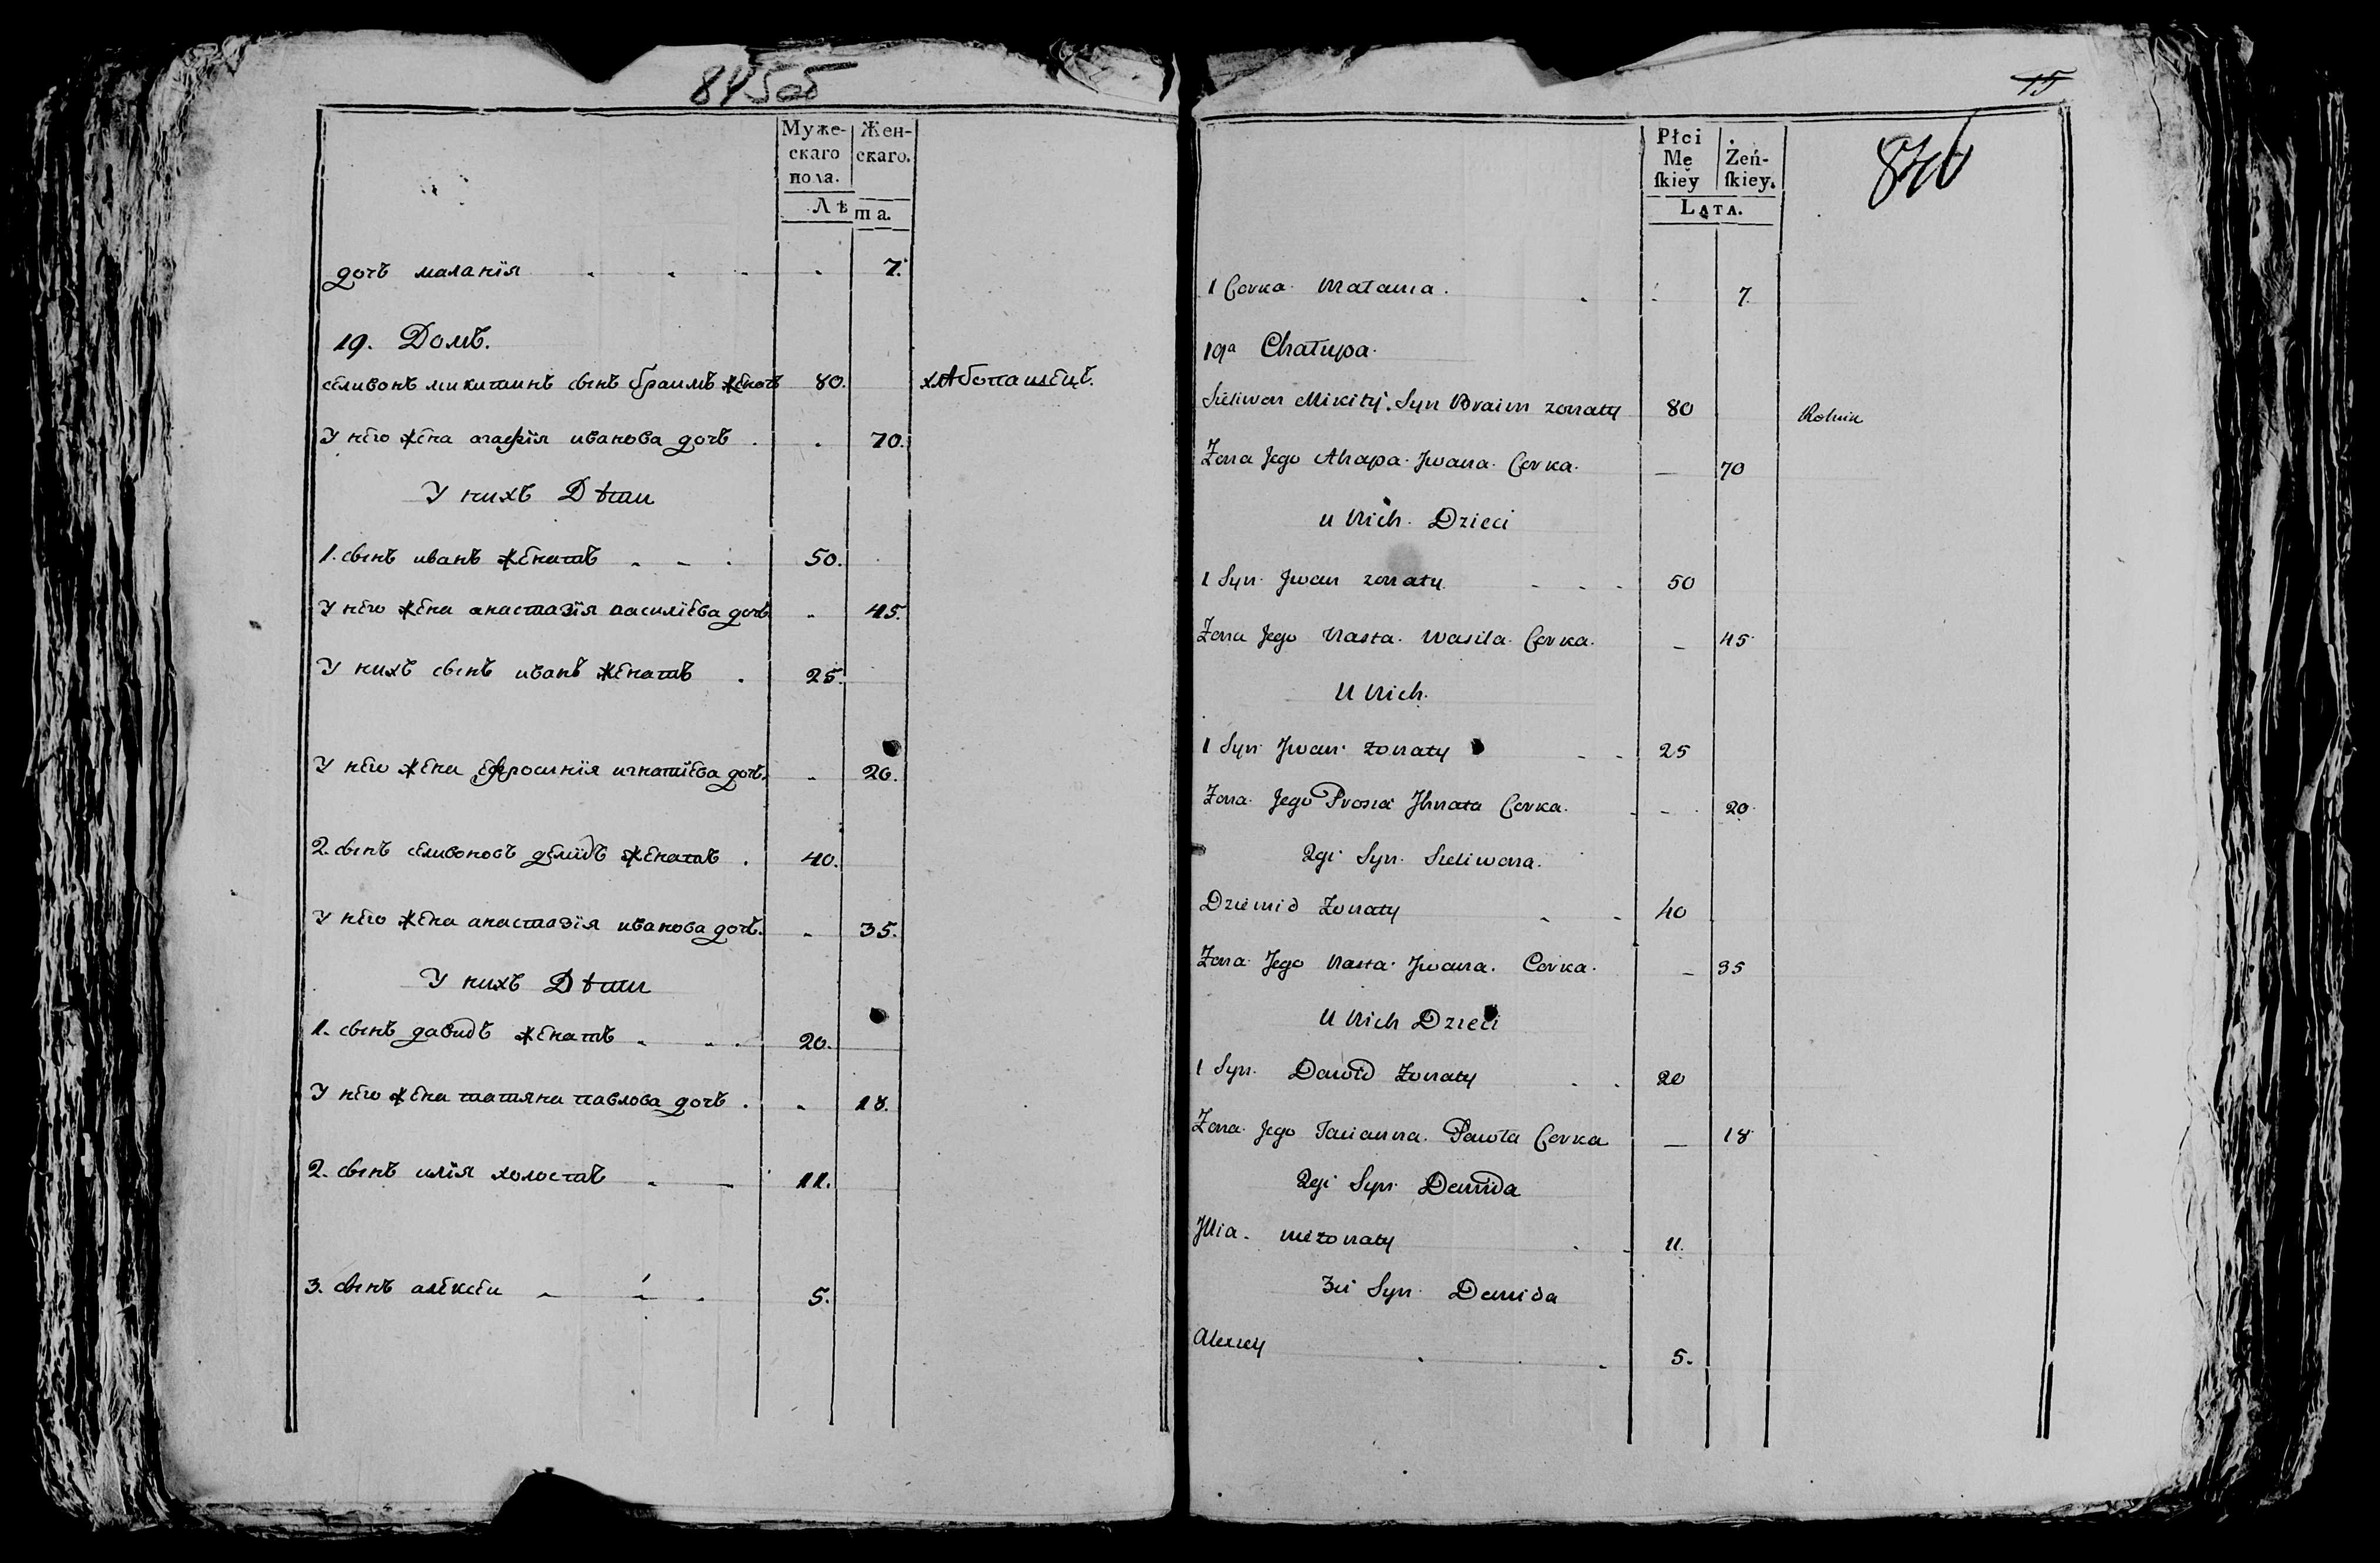 845об
Муже-
скаго
пола.
Жен-
скаго.
Лѣта.
дочь маланїя 7.
19. Домъ.
селивонъ микитинъ сынъ браимъ женатъ 80. хлѣбопашецъ.
У него жена агафїя иванова дочь 70.
У нихъ Дѣти
1. сынъ иванъ женатъ 50.
У него жена анастазїя василїева дочь 45.
У нихъ сынъ иванъ женатъ 25.
У него жена ефросинїя игнатїева дочь. 20.
2. сынъ селивоновъ демидъ женатъ 40.
У него жена анастазїя иванова дочь. 35.
У нихъ Дѣти
1. сынъ давидъ женатъ 20.
У него жена татяна павлова дочь 18.
2. сынъ илїя холостъ 11.
3. сынъ алексеи 5.
15
846
Płci
Mę
ſkiey
Żeń-
ſkiey.
Lata.
1 Corka Małania 7.
19a Chałupa.
Sieliwon Mikity Syn Braim zonaty 80 Rolnik
Zona Jego Ahapa Jwana Corka 70
u Nich Dzieci
1 Syn Jwan zonaty 50
Zona Jego Nasta Wasila Corka 45
U Nich
1 Syn Jwan zonaty 25
Zona Jego Prosia Jhnata Corka 20
2gi Syn Sieliwona
Dziemid Zonaty 40
Zona Jego Nasta Jwana Corka 35
U Nich Dzieci
1 Syn Dawid Zonaty 20
Zona Jego Tacianna Pawła Corka 18
2gi Syn Demida
Jllia niezonaty 11.
3ci Syn Demida
Alexiey 5.